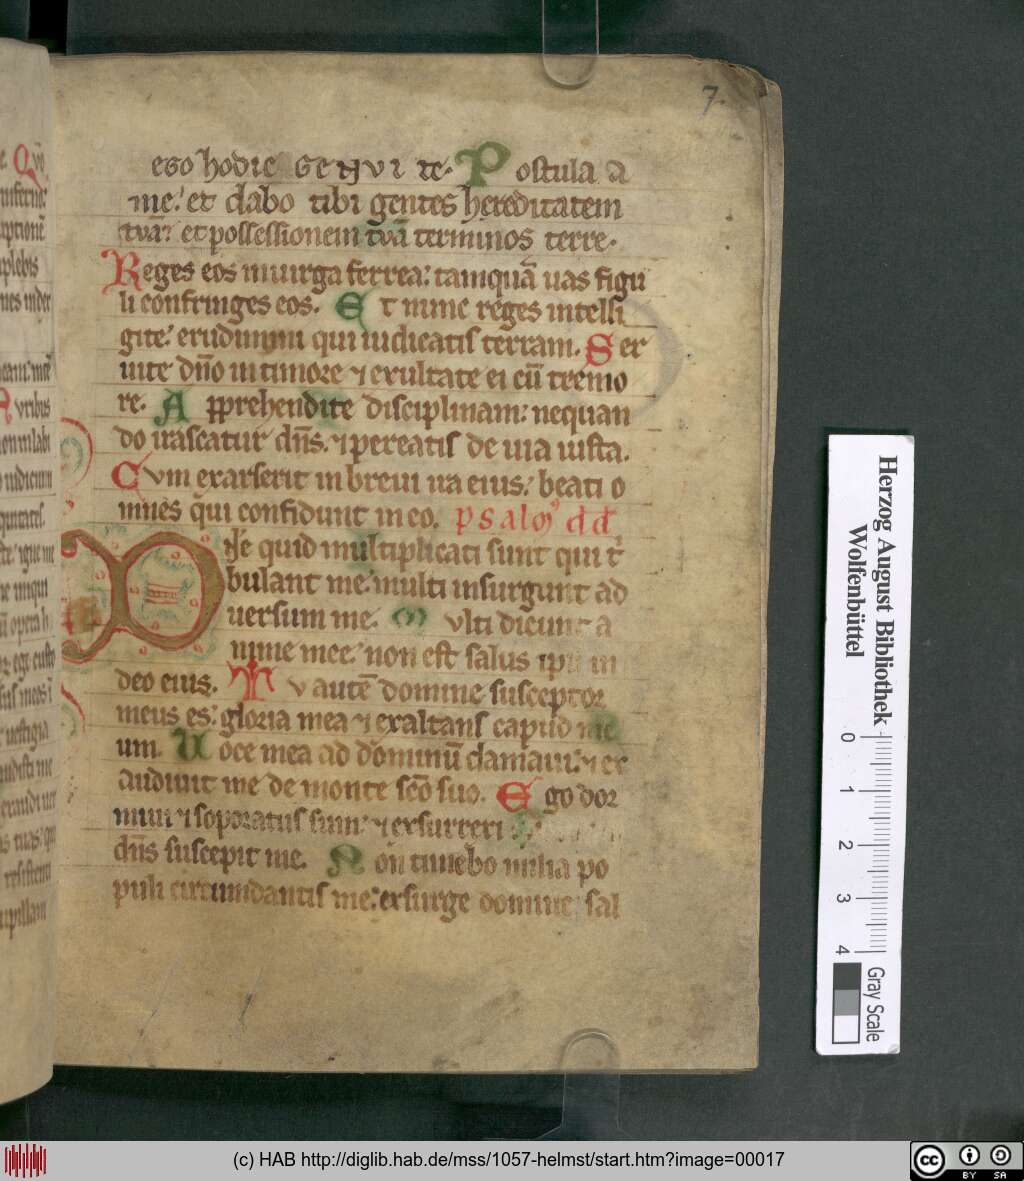 7.
ego hodie genui te. Postula a
me: et dabo tibi gentes hereditatem
tuā: et possessionem tuā terminos terre.
Reges eos in uirga ferrea: tamquā uas figu
li confringes eos. Et nunc reges intelli
gite: erudimini qui iudicatis terram. Ser
uite dn̄o in timore ⁊ exultate ei cū tremo
re. Apprehendite disciplinam: nequan
do irascatur dn̄s. ⁊ pereatis de uia iusta.
Cvm exarserit in breui ira eius: beati o
mnes qui confidunt in eo. psalm9 dd
Dn̄e quid multiplicati sunt qui t̄
bulant me: multi insurgunt ad
uersum me. Mvlti dicunt a
nime mee: non est salus ipi in
deo eius. Tv autē domine susceptor
meus es: gloria mea ⁊ exaltans capud me
um. Uoce mea ad dominū clamaui: ⁊ ex
audiuit me de monte scō suo. Ego dor
miui ⁊ soporatus sum: ⁊ exsurrexi
dn̄s suscepit me. Non timebo milia po
puli circumdantis me: exsurge domine sal
Herzog August Bibliothek
Wolfenbüttel
0 1 2 3 4
Gray Scale
(c) HAB http://diglib.hab.de/mss/1057-helmst/start.htm?image=00017
cc BY SA